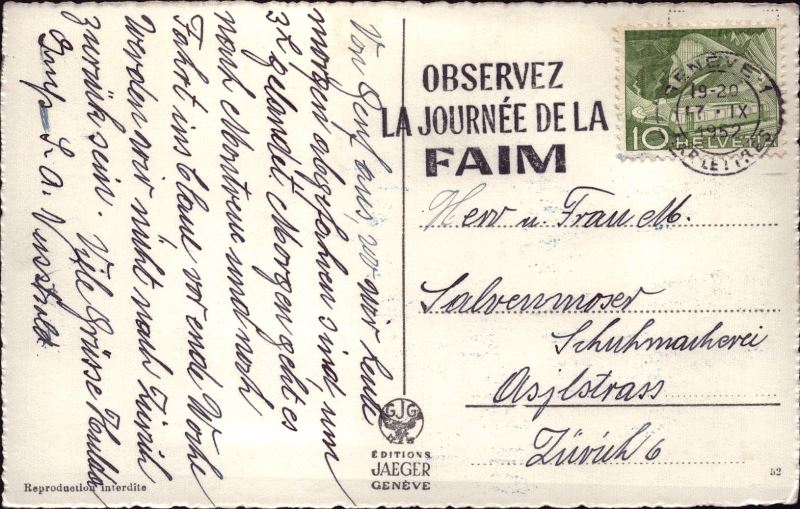 Von Genf aus, wo wir heute
morgen abgefahren sind, um
3h gelandet. Morgen geht es
nach Montreux und noch
Fahrt ins blaue vor ende Woche
werden wir nicht nach Zürich
zurück sein. Viele Grüsse
OBSERVEZ
LA JOURNÉE DE LA
FAIM
GENÈVE 1
19-20
17. IX
1952
10 HELVETIA
Herr u. Frau M.
Salvenmoser
Schuhmacherei
Asylstrass
Zürich 6
GJG
ÉDITIONS
JAEGER
GENÈVE
Reproduction interdite
52